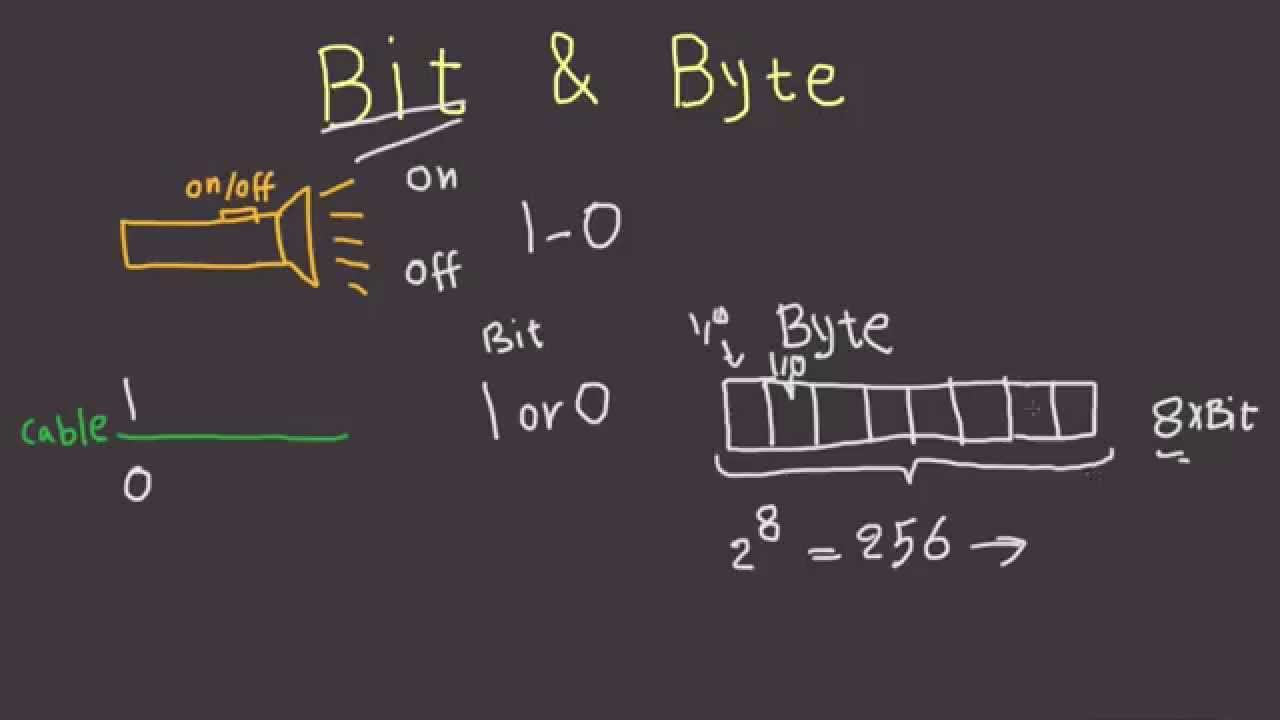 Bit & Byte
on/off
on
1-0
off
Bit
1/0
Byte
1/0
1
cable
0
1 or 0
8xBit
2⁸ = 256 →